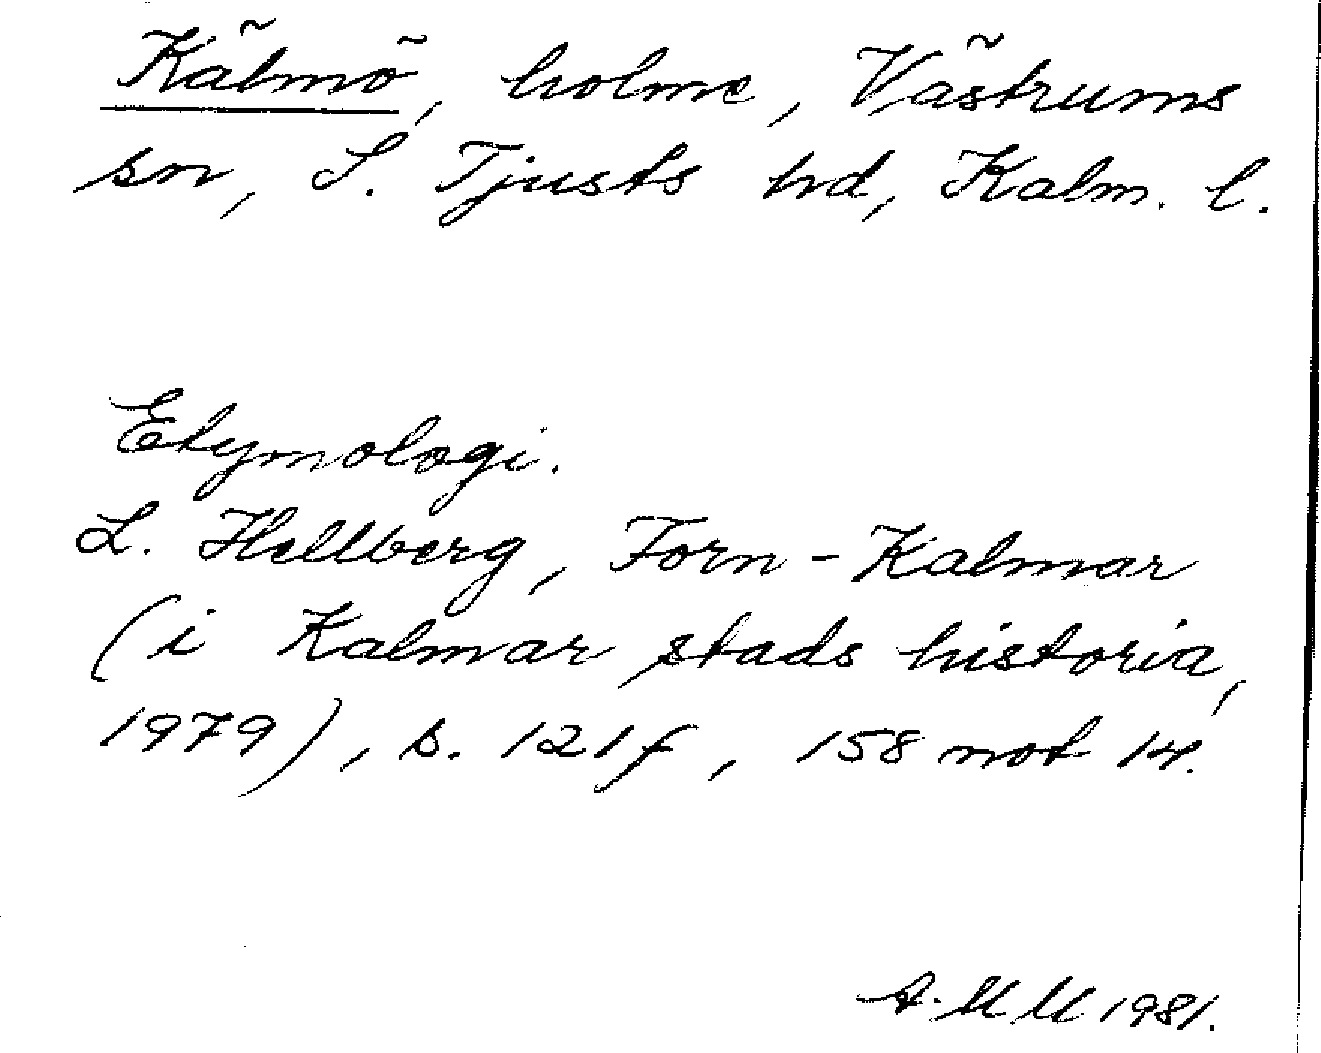 Kälmö, holme, Västrums
sn, S. Tjusts hd, Kalm. l.
Etymologi.
L. Hellberg, Forn-Kalmar
(i Kalmar stads historia,
1979), s. 121f, 158 not 14.
A. M M 1981.